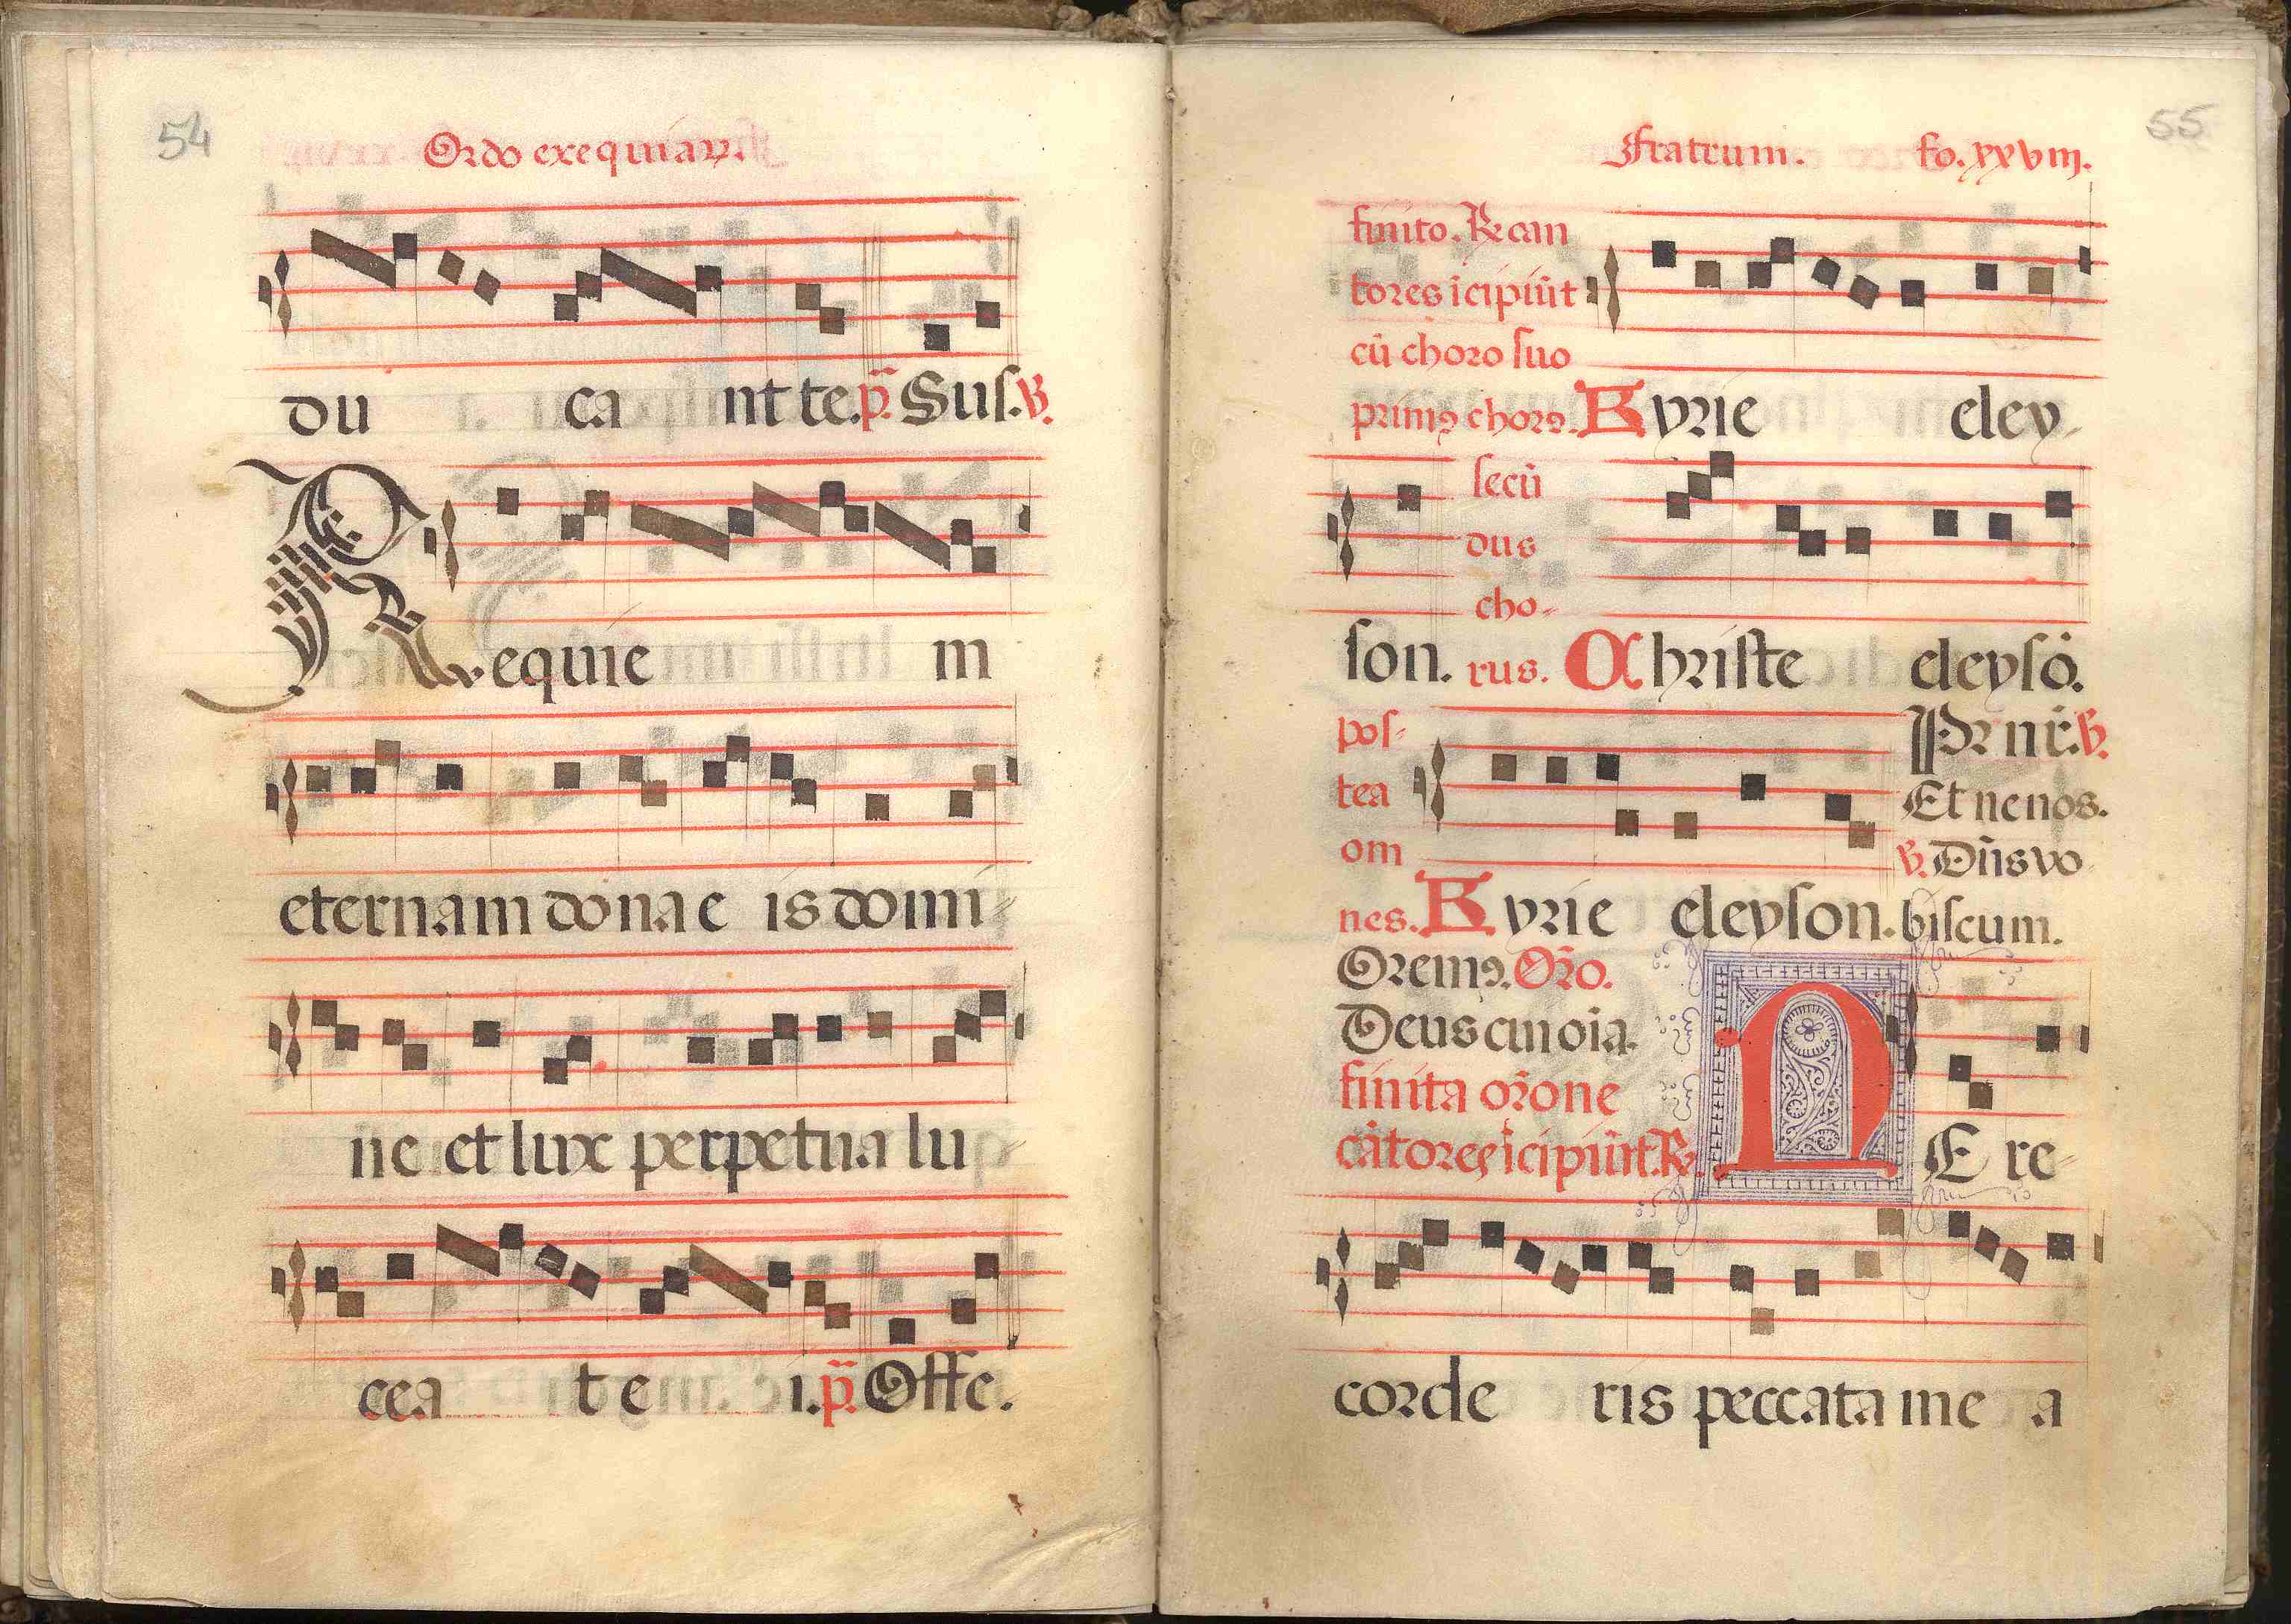 54
Ordo exequiaꝝ.
du ca nt te. p̃. Sus. ℣.
Requie m
eternam dona e is domi
ne et lux perpetua lu
cea t e i. p̃. Offe.
55
Fratrum. fo. xxviij.
finito. ℟ can
tores īcipiūt
cū choro suo
primꝯ chorꝯ. Kyrie eley
son. secū
dus
cho
rus. Christe eleysō.
pos
tea
om
nes. Kyrie eleyson.
Pr nr̄. ℣.
Et ne nos.
℣. Dn̄s vo
biscum.
Oremꝯ. Or̄o.
Deus cui oīa.
finita or̄one
cātores īcipiūt. ℟.
NE re
corde ris peccata me a